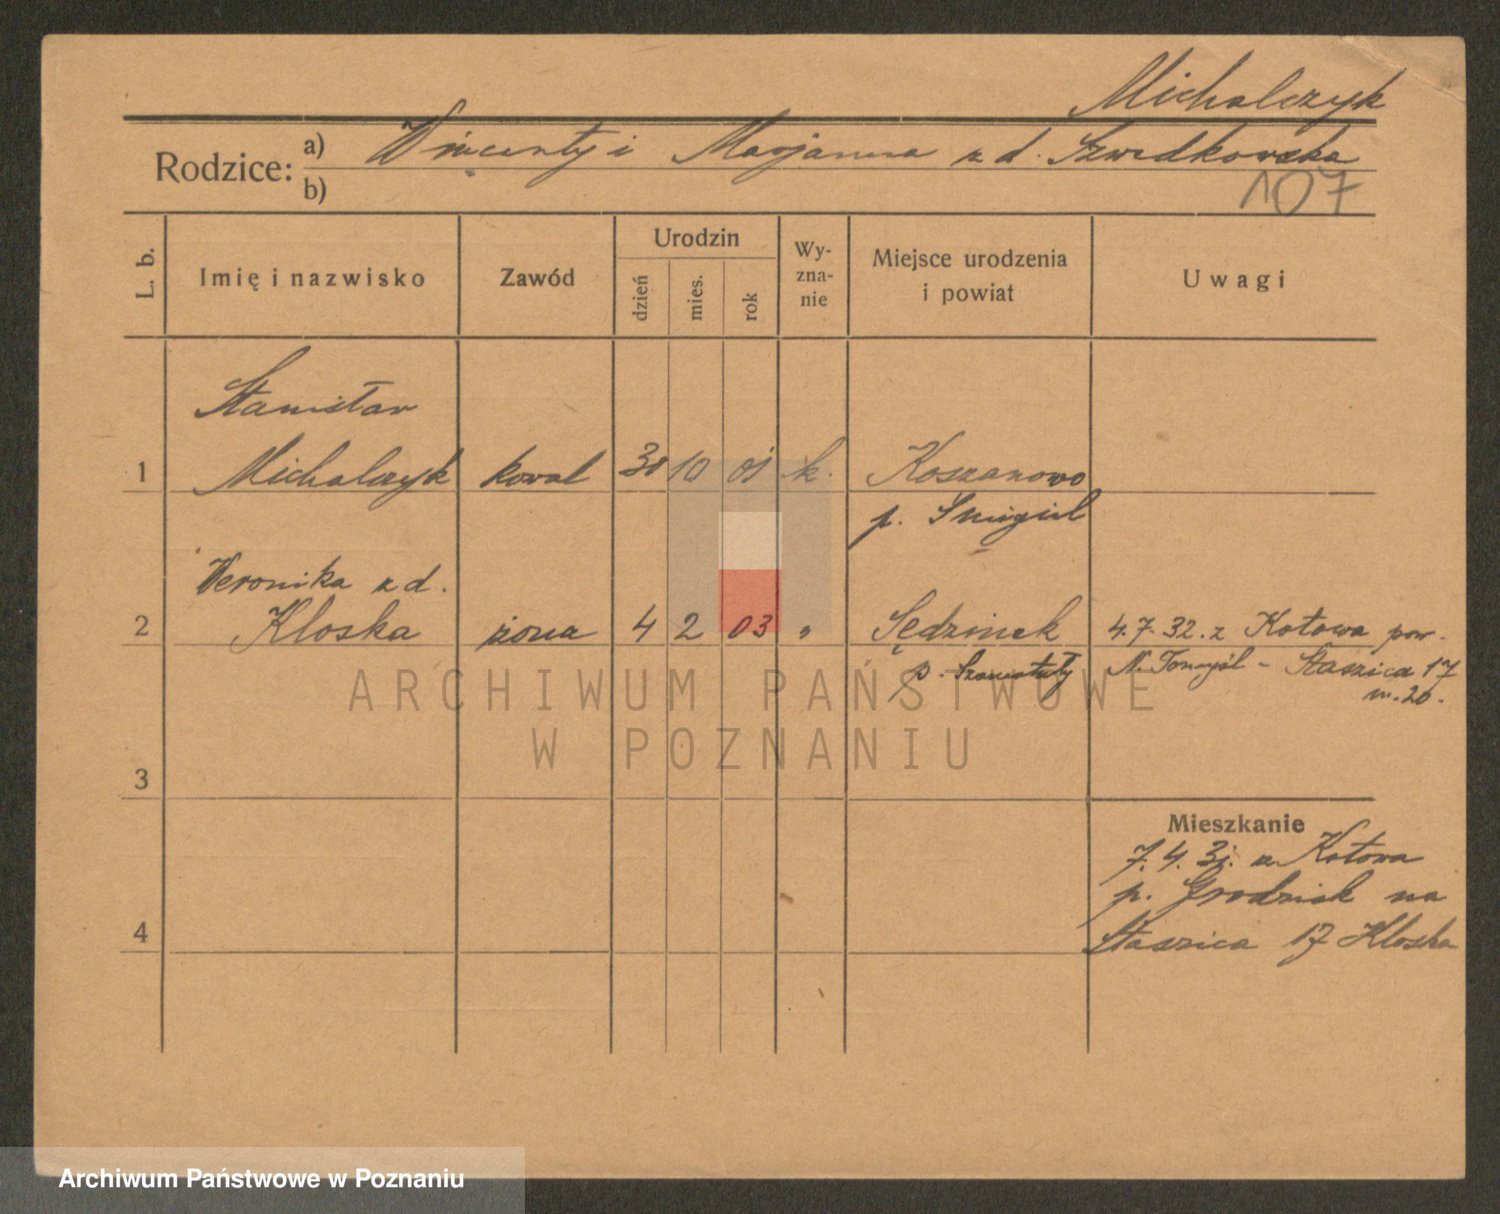 Michalczyk
Rodzice: a) Wincenty i Marjanna z d. Szwedkowska
b)
107
L. b.
Imię i nazwisko
Zawód
Urodzin
dzień
mies.
rok
Wy-
zna-
nie
Miejsce urodzenia
i powiat
Uwagi
Stanisław
1 Michalczyk kowal 30 10 k. Koszanowo
p. Śmigiel
Weronika z d.
2 Kloska żona 4 2 03 " Sędzinek 4.7.32. z Kotowa pow.
p. Szamotuły N. Tomyśl - Staszica 17
m. 20.
3
Mieszkanie
7.4.31. z Kotowa
p. Grodzisk na
4 Staszica 17 Kloska
ARCHIWUM PAŃSTWOWE
W POZNANIU
Archiwum Państwowe w Poznaniu